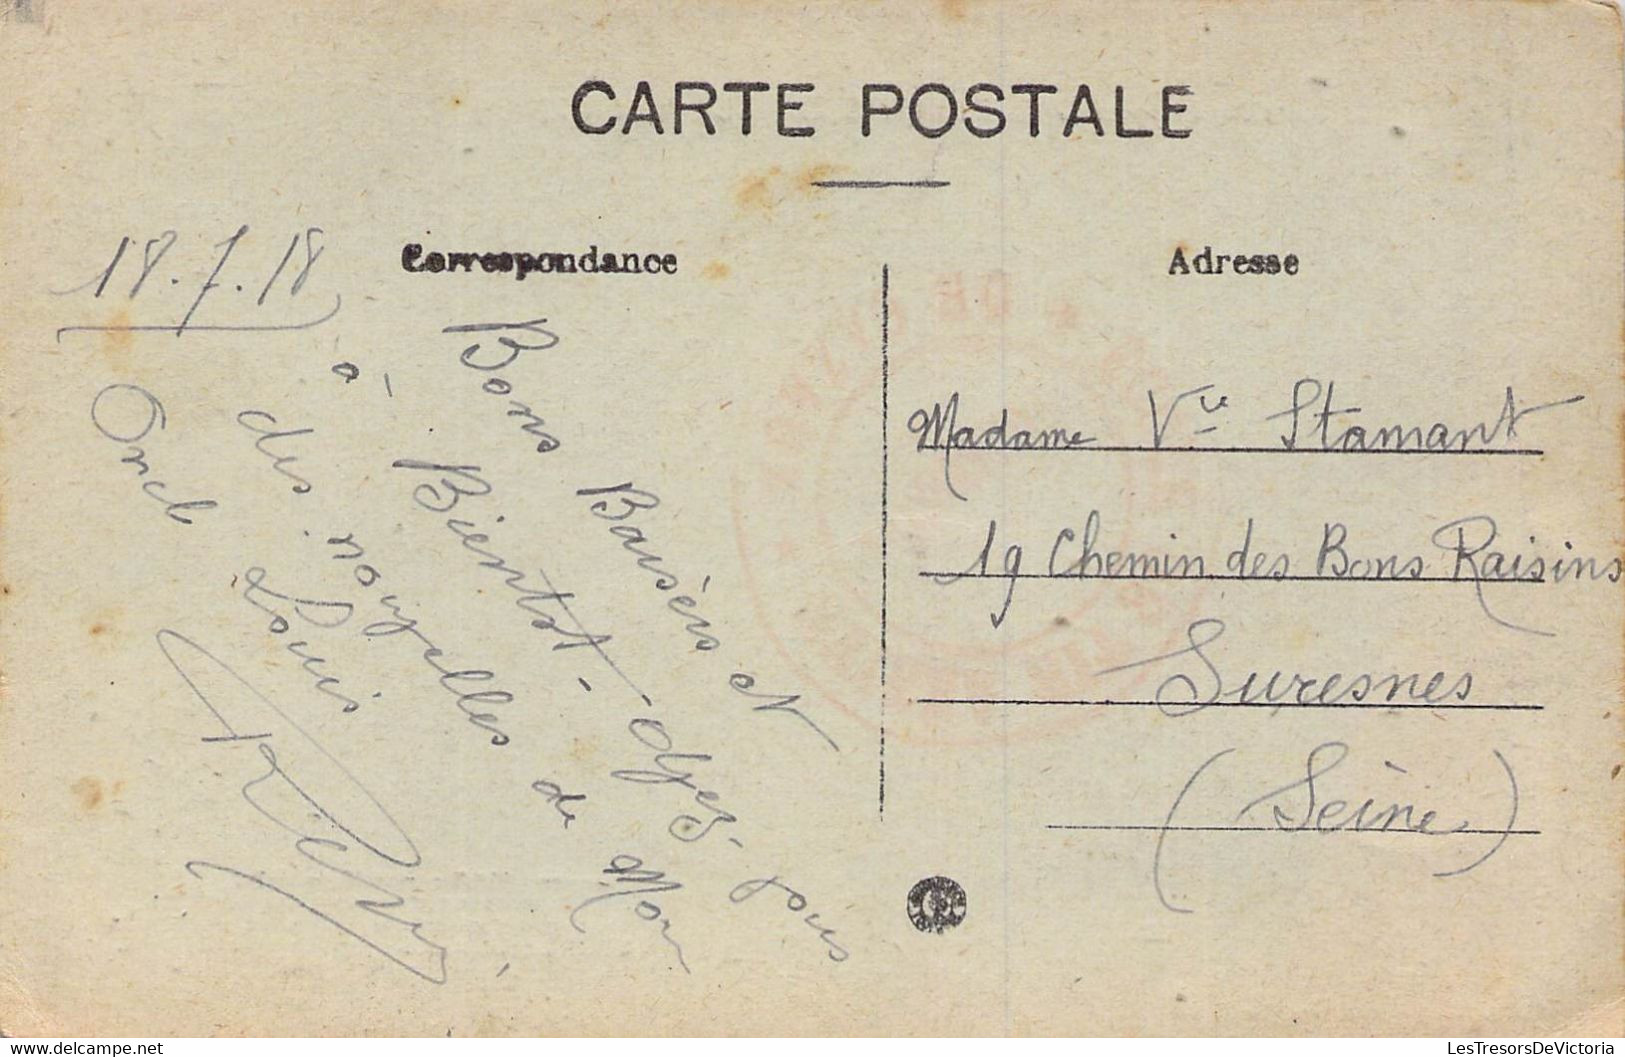 CARTE POSTALE
Correspondance
Adresse
18.7.18
Bons Baisèrs et
à Bientot - Ayez-vous
des nouvelles de Mon
Oncl Louis
Madame Vve Stamant
19 Chemin des Bons Raisins
Suresnes
(Seine)
LesTresorsDeVictoria